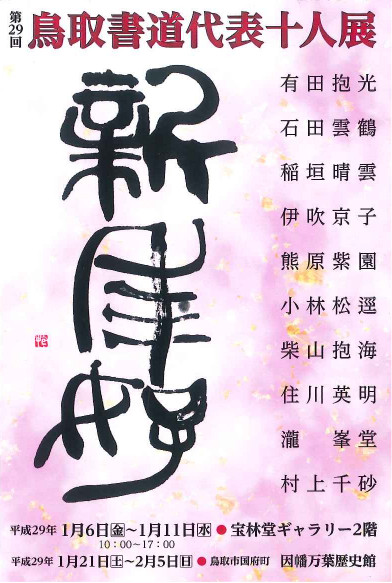 第29回 鳥取書道代表十人展
新年好
有田抱光
石田雲鶴
稲垣晴雲
伊吹京子
熊原紫園
小林松逕
柴山抱海
住川英明
瀧峯堂
村上千砂
平成29年 1月6日金～1月11日水 ● 宝林堂ギャラリー2階
10：00～17：00
平成29年 1月21日土～2月5日日 ● 鳥取市国府町 因幡万葉歴史館